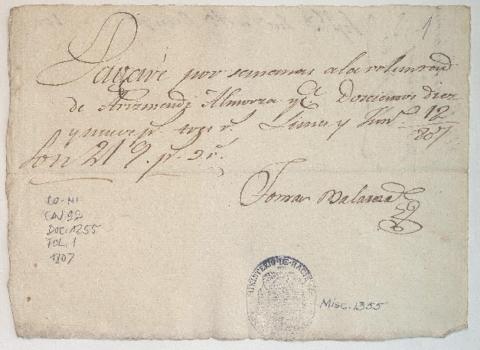 1
Pagaré por semanas a la voluntad
de Arizmendi Almorza y Cª Doscientos diez
y nueve p.s tres r.s Lima y Jun.o 12
807
Son 219 p.s 3 r.s
Tomas
CO-MI
CAJ:92
DOC:1255
FOL:1
1807
MINISTERIO DE HACIENDA
Misc. 1355